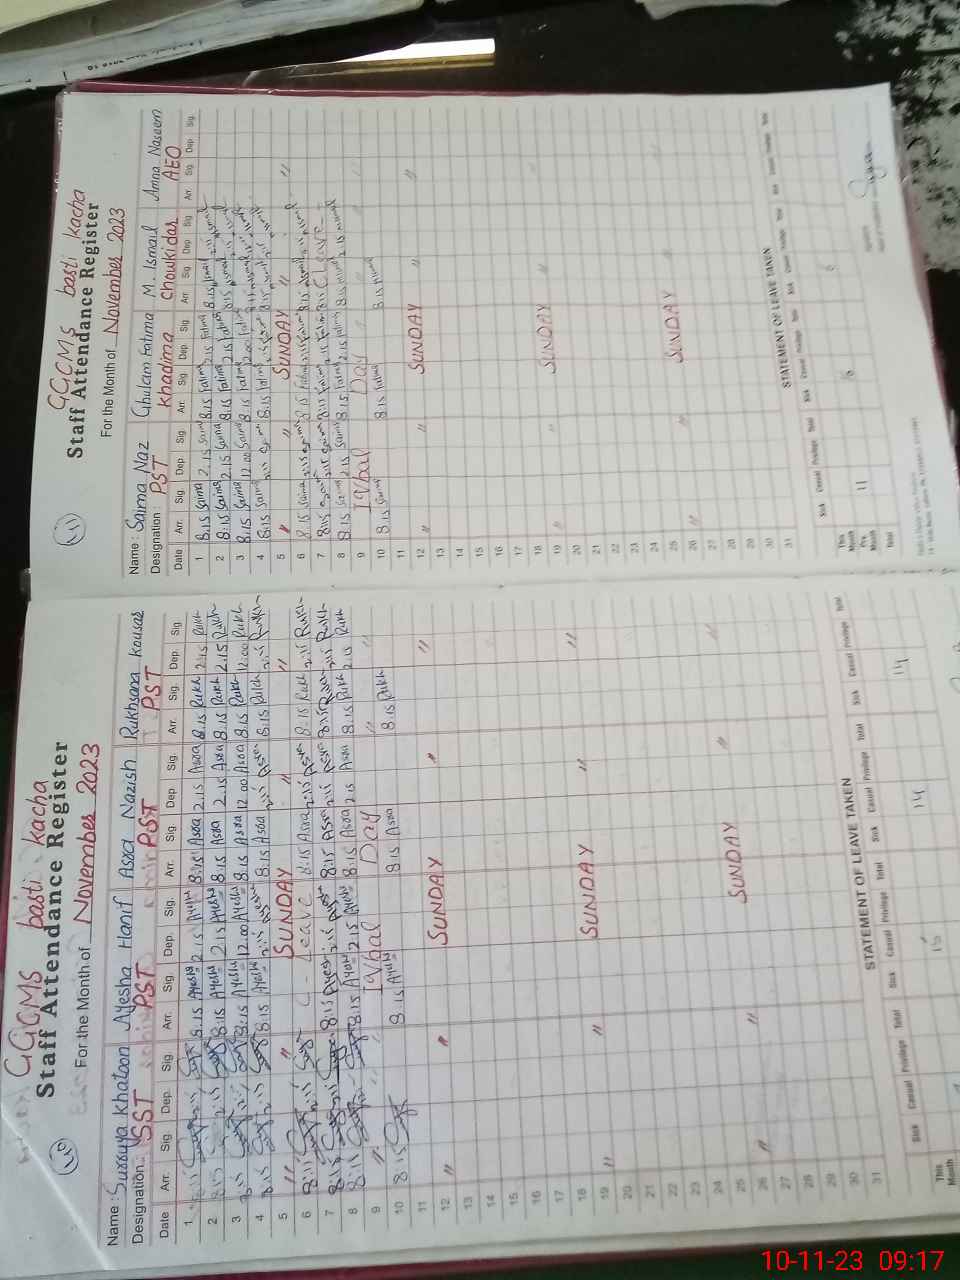 GGCMS basti kacha
Staff Attendance Register
For the Month of November 2023
Name: Surruya Khatoon Ayesha Hanif Asra Nazish Rukhsana Kousar
Designation: SST PST PST PST
Date Arr. Sig. Dep. Sig. Arr. Sig. Dep. Sig. Arr. Sig. Dep. Sig. Arr. Sig. Dep. Sig.
1 8:15 2:15 8:15 Ayesha 2:15 Ayesha 8:15 Asra 2:15 Asra 8:15 Rukh 2:15 Rukh
2 8:15 2:15 8:15 Ayesha 2:15 Ayesha 8:15 Asra 2:15 Asra 8:15 Rukh 2:15 Rukh
3 8:15 2:15 8:15 Ayesha 12:00 Ayesha 8:15 Asra 12:00 Asra 8:15 Rukh 12:00 Rukh
4 8:15 2:15 8:15 Ayesha 2:15 Ayesha 8:15 Asra 2:15 Asra 8:15 Rukh 2:15 Rukh
5 " " SUNDAY " "
6 8:15 2:15 C - Leave 8:15 Asra 2:15 Asra 8:15 Rukh 2:15 Rukh
7 8:15 2:15 8:15 Ayesha 2:15 Ayesha 8:15 Asra 2:15 Asra 8:15 Rukh 2:15 Rukh
8 8:15 8:15 Ayesha 2:15 Ayesha 8:15 Asra 2:15 Asra 8:15 Rukh 2:15 Rukh
9 " " Iqbal Day " "
10 8:15 8:15 Ayesha 8:15 Asra 8:15 Rukh
11
12 " " SUNDAY " "
13
14
15
16
17
18
19 " " SUNDAY " "
20
21
22
23
24
25
26 " " SUNDAY " "
27
28
29
30
31
STATEMENT OF LEAVE TAKEN
Sick Casual Privilege Total Sick Casual Privilege Total Sick Casual Privilege Total Sick Casual Privilege Total
This Month
14 14
GGCMS basti kacha
Staff Attendance Register
For the Month of November 2023
Name: Saima Naz Ghulam Fatima M. Ismail Amna Naseem
Designation: PST Khadima Chowkidar AEO
Date Arr. Sig. Dep. Sig. Arr. Sig. Dep. Sig. Arr. Sig. Dep. Sig. Arr. Sig. Dep. Sig.
1 8:15 Saima 2:15 Saima 8:15 Fatima 2:15 Fatima 8:15 Ismail 2:15 Ismail
2 8:15 Saima 2:15 Saima 8:15 Fatima 2:15 Fatima 8:15 Ismail 2:15 Ismail
3 8:15 Saima 12:00 Saima 8:15 Fatima 12:00 Fatima 8:15 Ismail
4 8:15 Saima 2:15 Saima 8:15 Fatima 2:15 Fatima 8:15 Ismail 2:15 Ismail
5 " " SUNDAY " "
6 8:15 Saima 2:15 Saima 8:15 Fatima 2:15 Fatima 8:15 Ismail 2:15 Ismail
7 8:15 Saima 2:15 Saima 8:15 Fatima 2:15 Fatima 8:15 C Leave -
8 8:15 Saima 2:15 Saima 8:15 Fatima 2:15 Fatima 8:15 Ismail 2:15 Ismail
9 Iqbal Day " "
10 8:15 Saima 8:15 Fatima 8:15 Ismail
11
12 " " SUNDAY " "
13
14
15
16
17
18
19 " " SUNDAY "
20
21
22
23
24
25
26 " " SUNDAY " "
27
28
29
30
31
STATEMENT OF LEAVE TAKEN
Sick Casual Privilege Total Sick Casual Privilege Total Sick Casual Privilege Total Sick Casual Privilege Total
This Month
11
Pre. Month
Total
10-11-23 09:17